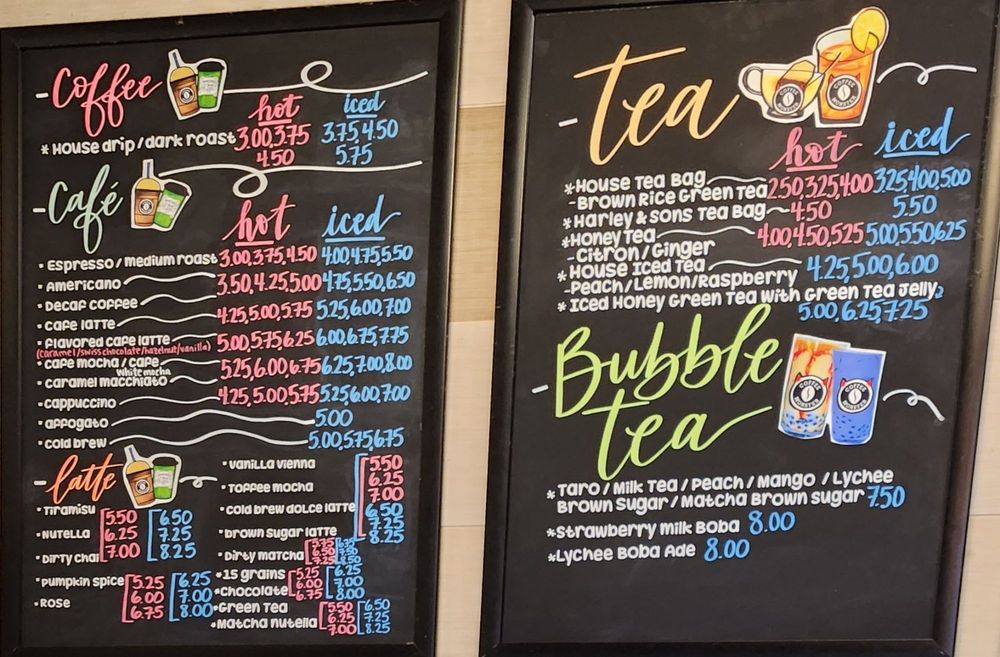 Coffee
hot iced
* House drip/dark roast 3.00,3.75 3.75,4.50
4.50 5.75
Café
hot iced
Espresso / medium roast 3.00,3.75,4.50 4.00,4.75,5.50
Americano 3.50,4.25,5.00 4.75,5.50,6.50
Decaf coffee
cafe latte 4.25,5.00,5.75 5.25,6.00,7.00
flavored cafe latte 5.00,5.75,6.25 6.00,6.75,7.75
(caramel/swiss chocolate/hazelnut/vanilla)
cafe mocha / cafe white mocha 5.25,6.00,6.75 6.25,7.00,8.00
caramel macchiato
cappuccino 4.25,5.00,5.75 5.25,6.00,7.00
affogato 5.00
cold brew 5.00,5.75,6.75
latte
Tiramisu
Nutella
Dirty chai
5.50 6.50
6.25 7.25
7.00 8.25
Pumpkin spice
Rose
5.25 6.25
6.00 7.00
6.75 8.00
vanilla vienna
Toffee mocha
cold brew dolce latte
brown sugar latte
5.50
6.25
7.00
6.50
7.25
8.25
Dirty matcha
5.75
6.50 7.50
7.25 8.50
*15 grains
*chocolate
5.25 6.25
6.00 7.00
6.75 8.00
*Green Tea
*Matcha nutella
5.50 6.50
6.25 7.25
7.00 8.25
Tea
COFFEE ROASTERS
COFFEE ROASTERS
hot iced
*House Tea Bag
-Brown Rice Green Tea 2.50,3.25,4.00 3.25,4.00,5.00
*Harley & sons Tea Bag 4.50 5.50
*Honey Tea 4.00,4.50,5.25 5.00,5.50,6.25
-Citron / Ginger
*House Iced Tea 4.25,5.00,6.00
-Peach / Lemon/Raspberry
* Iced Honey Green Tea with Green Tea Jelly
5.00,6.25,7.25
Bubble
tea
COFFEE ROASTERS
COFFEE ROASTERS
* Taro / Milk Tea / Peach / Mango / Lychee
Brown Sugar / Matcha Brown sugar 7.50
*Strawberry Milk Boba 8.00
*Lychee Boba Ade 8.00